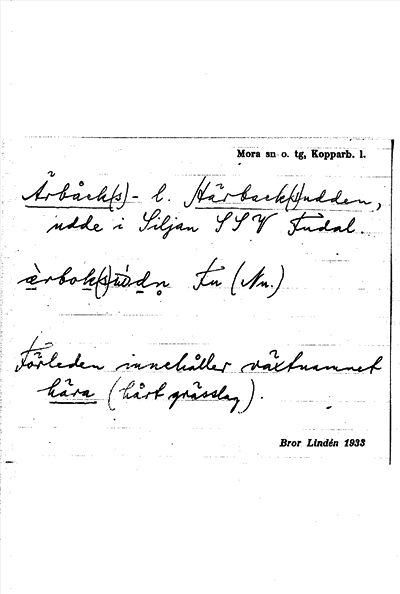 Mora sn o. tg, Kopparb. l.
Ärbäck(s)- l. Härback(s)udden,
udde i Siljan SSV Fudal.
ærbok(s)ùdn̥ Fu (Nu.)
Förleden innehåller växtnamnet
hära (hårt grässlag).
Bror Lindén 1933